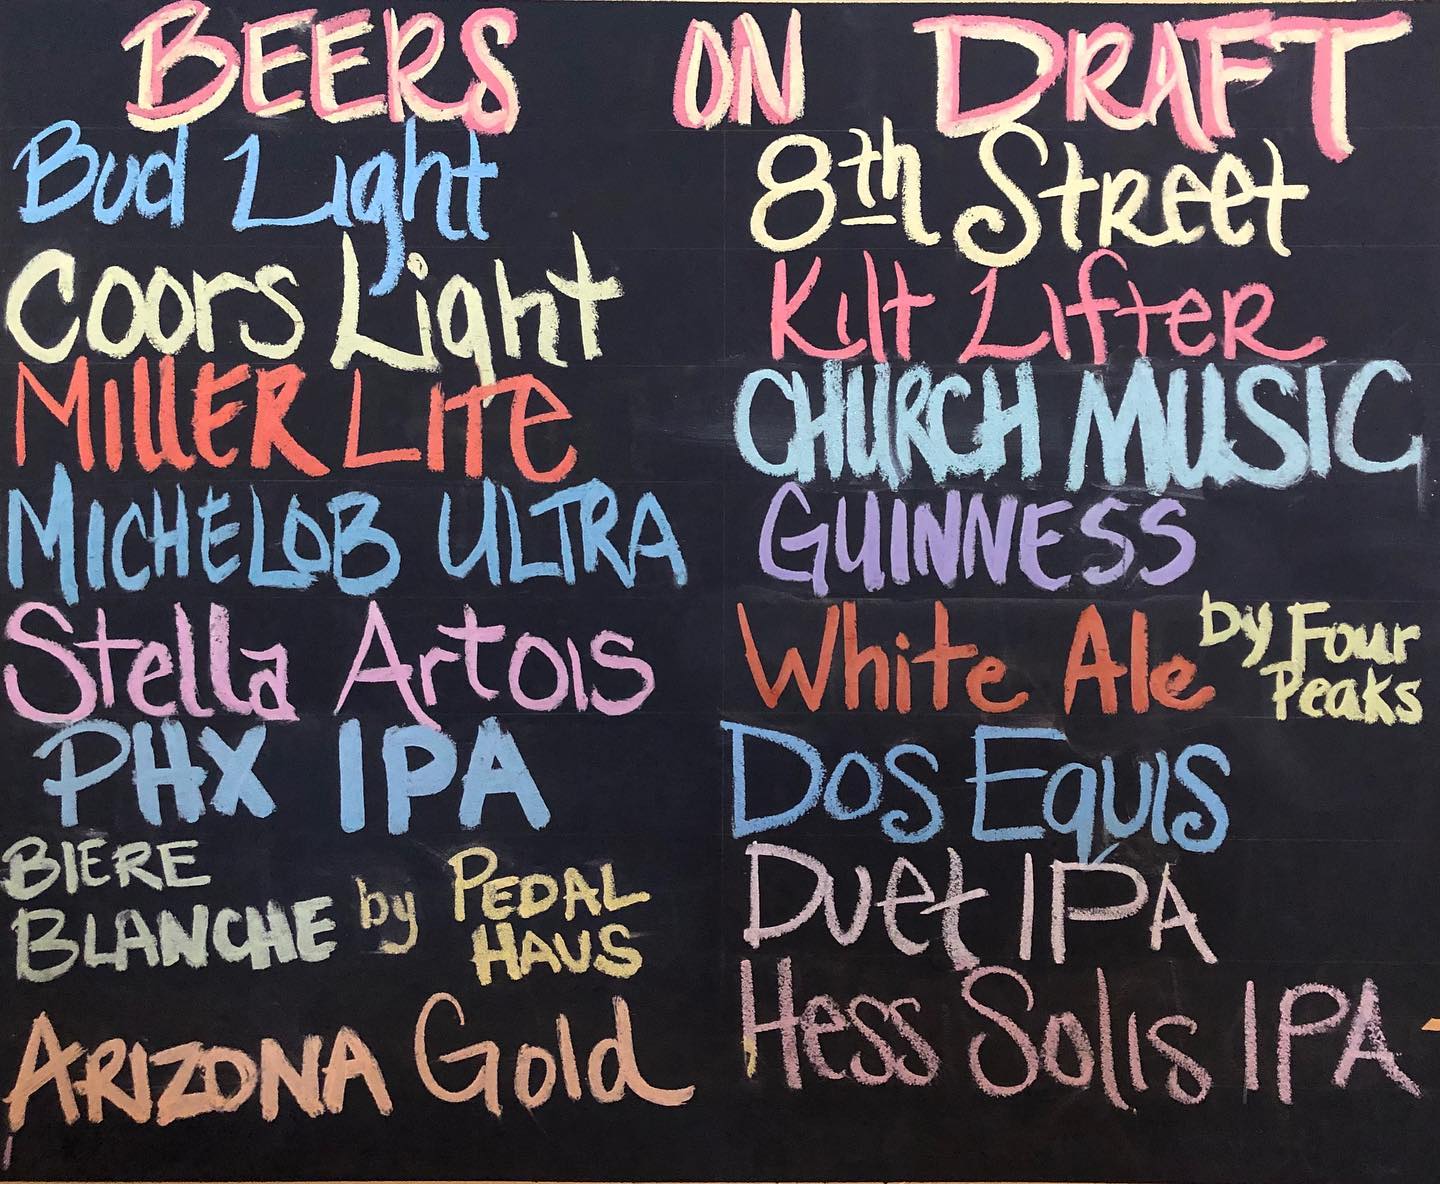 BEERS ON DRAFT
Bud Light
Coors Light
MILLER LITE
MICHELOB ULTRA
Stella Artois
PHX IPA
BIERE
BLANCHE by PEDAL
HAUS
ARIZONA Gold
8th Street
Kilt Lifter
CHURCH MUSIC
GUINNESS
White Ale by Four
Peaks
Dos Equis
Duet IPA
Hess Solis IPA